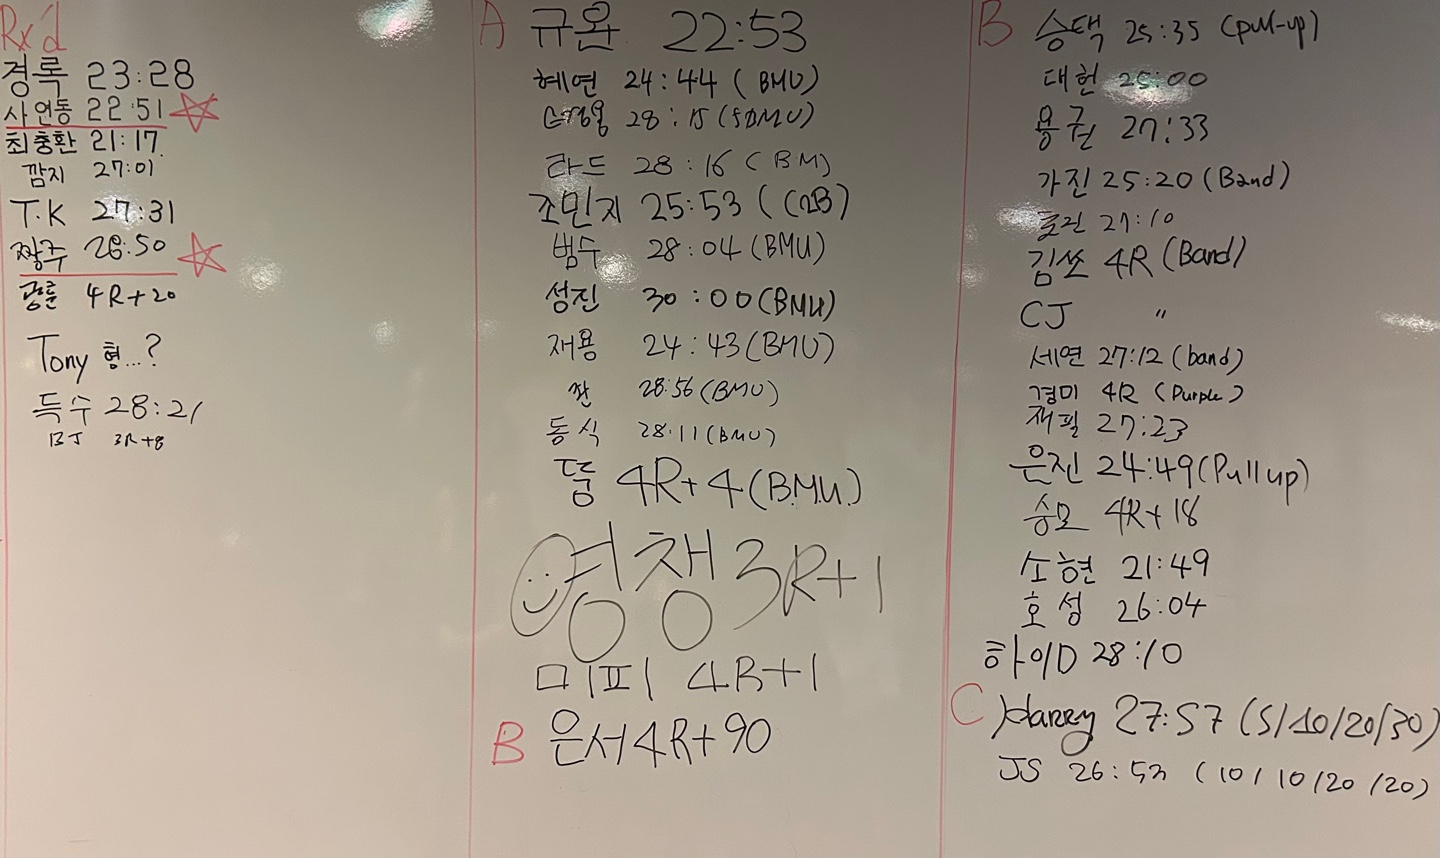 Rx'd
경록 23:28
사연동 22:51
최충환 21:17
깜지 27:01
T.K 27:31
짱주 28:50
광훈 4R+20
Tony 형...?
득수 28:21
BJ 3R+8
A 규완 22:53
혜연 24:44 (BMU)
28:15
라드 28:16 (BM)
조민지 25:53 (C2B)
범수 28:04 (BMU)
성진 30:00 (BMU)
재용 24:43 (BMU)
짠 28:56 (BMU)
동식 28:11 (BMU)
4R+4 (B.M.U.)
영챙 3R+1
미피 4R+1
B 은서 4R+90
B 승택 25:35 (pull-up)
대헌 25:00
용권 27:33
가진 25:20 (Band)
21:10
김쏘 4R (Band)
CJ 〃
세연 27:12 (band)
경미 4R (Purple)
재필 27:23
은진 24:49 (Pull up)
승모 4R+18
소현 21:49
호성 26:04
하이D 28:10
C Harry 27:57 (5/10/20/30)
JS 26:53 (10/10/20/20)